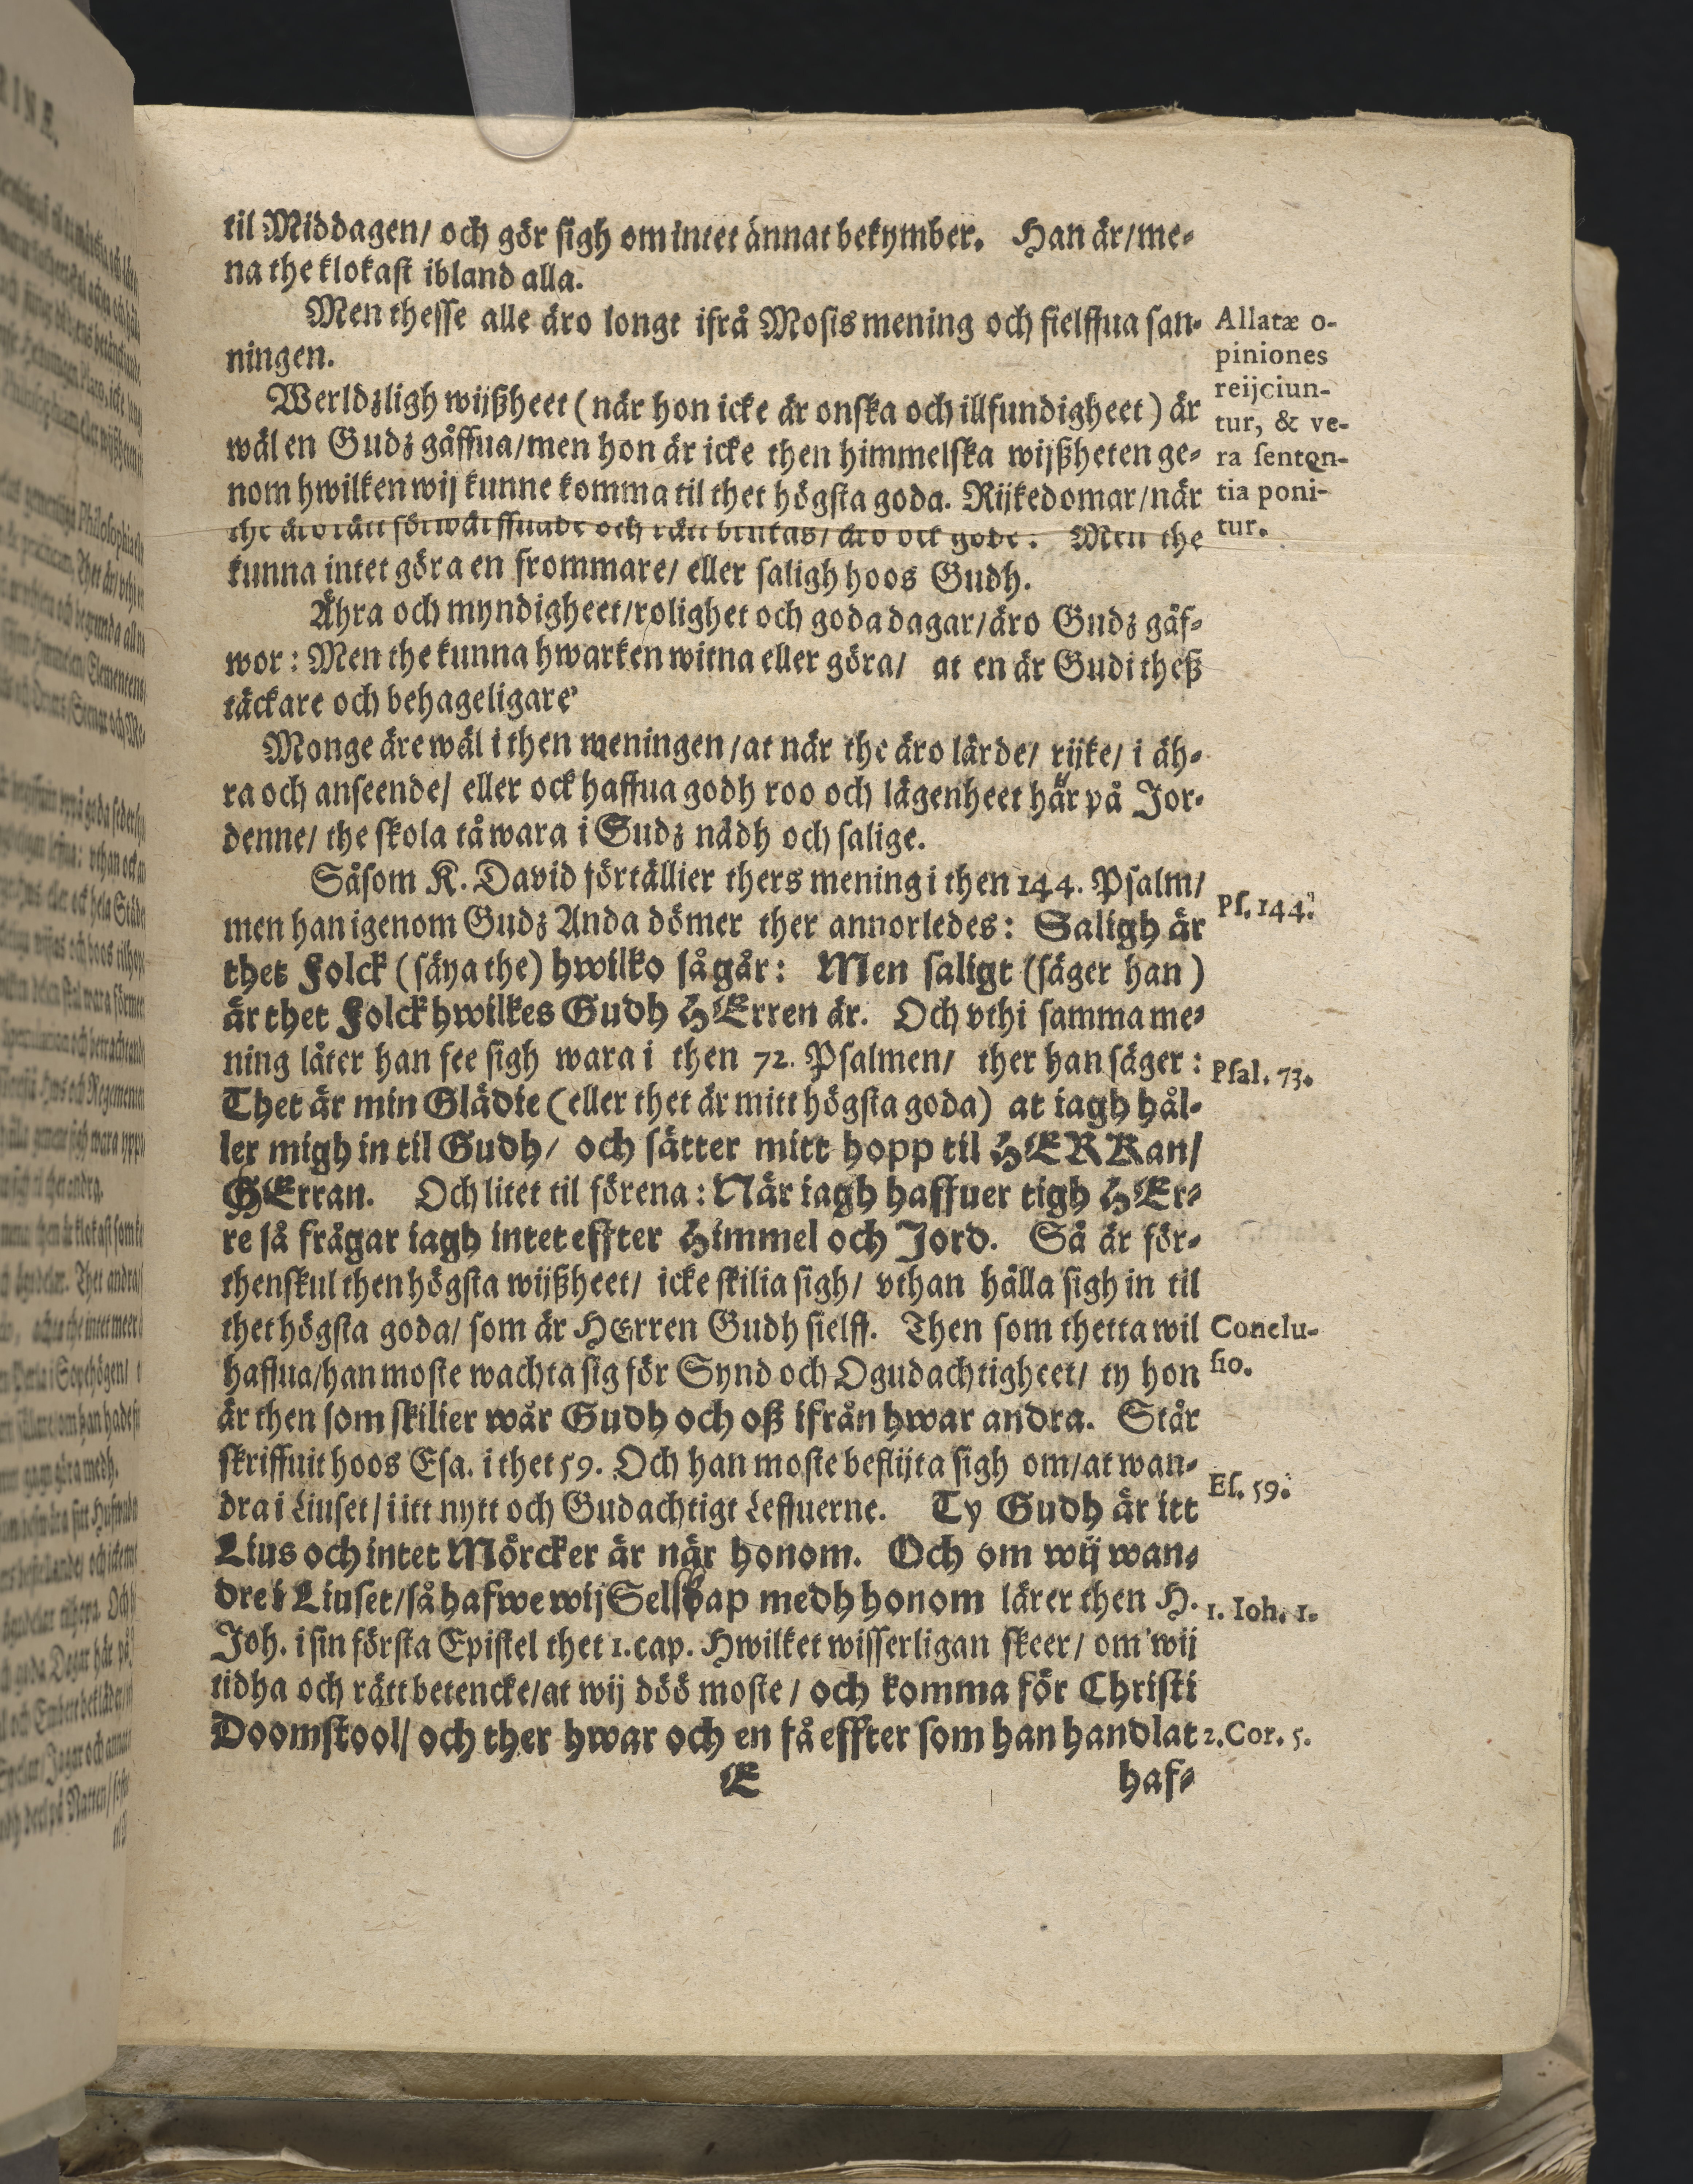 til Middagen/ och gör sigh om intet annat bekymber. Han är/ me-
na the klokast ibland alla.
Men thesse alle äro longt ifrå Mosis mening och sielffua san-
ningen.
Allatæ o-
piniones
reijciun-
tur, & ve-
ra senten-
tia poni-
tur.
Werldzligh wijßheet (när hon icke är onska och illfundigheet) är
wäl en Gudz gåffua/ men hon är icke then himmelska wijßheten ge-
nom hwilken wij kunne komma til thet högsta goda. Rijkedomar/ när
the äro rätt förwärffuade och rätt brukas/ äro ock gode. Men the
kunna intet göra en frommare/ eller saligh hoos Gudh.
Ähra och myndigheet/ rolighet och goda dagar/ äro Gudz gåf-
wor: Men the kunna hwarken witna eller göra/ at en är Gudi theß
täckare och behageligare
Monge äre wäl i then meningen/ at när the äro lärde/ rijke/ i äh-
ra och anseende/ eller ock haffua godh roo och lägenheet här på Jor-
denne/ the skola tå wara i Gudz nådh och salige.
Såsom K. David förtällier thers mening i then 144. Psalm/
Ps. 144.
men han igenom Gudz Anda dömer ther annorledes: Saligh är
thet Folck (säya the) hwilko så går: Men saligt (säger han)
är thet Folck hwilkes Gudh HErren är. Och vthi samma me-
ning låter han see sigh wara i then 72. Psalmen/ ther han säger:
Psal. 73.
Thet är min Glädie (eller thet är mitt högsta goda) at iagh hål-
ler migh in til Gudh/ och sätter mitt hopp til HERRan/
GErran. Och litet til förena: När iagh haffuer tigh HEr-
re så frågar iagh intet effter Himmel och Jord. Så är för-
thenskul then högsta wijßheet/ icke skilia sigh/ vthan hålla sigh in til
thet högsta goda/ som är HErren Gudh sielff. Then som thetta wil
Conclu-
sio.
haffua/ han moste wachta sig för Synd och Ogudachtigheet/ ty hon
är then som skilier wår Gudh och oß ifrån hwar andra. Står
skriffuit hoos Esa. i thet 59. Och han moste beflijta sigh om/ at wan-
Es. 59.
dra i Liuset/ i itt nytt och Gudachtigt Leffuerne. Ty Gudh är itt
Lius och intet Mörcker är när honom. Och om wij wan-
dre i Liuset/ så hafwe wij Selskap medh honom lärer then H.
1. Ioh. 1.
Joh. i sin första Epistel thet 1. cap. Hwilket wisserligan skeer/ om wij
tidha och rätt betencke/ at wij döö moste/ och komma för Christi
Doomstool/ och ther hwar och en få effter som han handlat
2. Cor. 5.
E haf-